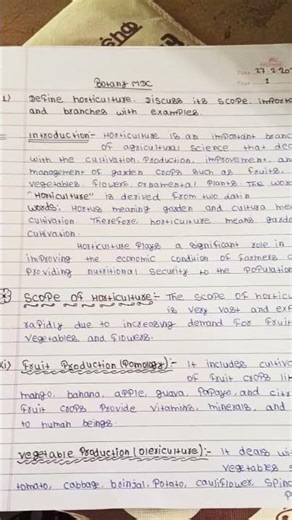 Date 27.2.20
Page 1
Botany MDC
1) Define horticulture. Discuss its scope, import
and branches with examples.
Introduction:- Horticulture is an important branc
of agricultural science that dea
with the cultivation, production, improvement, an
management of garden crops such as fruits,
vegetables, flowers, ornamental plants. The wor
"Horticulture" is derived from two Latin
words: Hortus meaning garden and cultura me
cultivation. Therefore, horticulture means garde
cultivation.
Horticulture plays a significant role in
improving the economic condition of farmers a
providing nutritional security to the population
Scope of Horticulture:- The scope of hortic
is very vast and exp
rapidly due to increasing demand for fruit
vegetables and flowers.
i) Fruit Production (Pomology):- It includes cultiva
of fruit crops li
mango, banana, apple, guava, papaya, and citr
fruit crops provide vitamins, minerals, and
to human beings.
Vegetable Production (Olericulture):- It deals wi
vegetables s
tomato, cabbage, boinjal, potato, cauliflower, spin